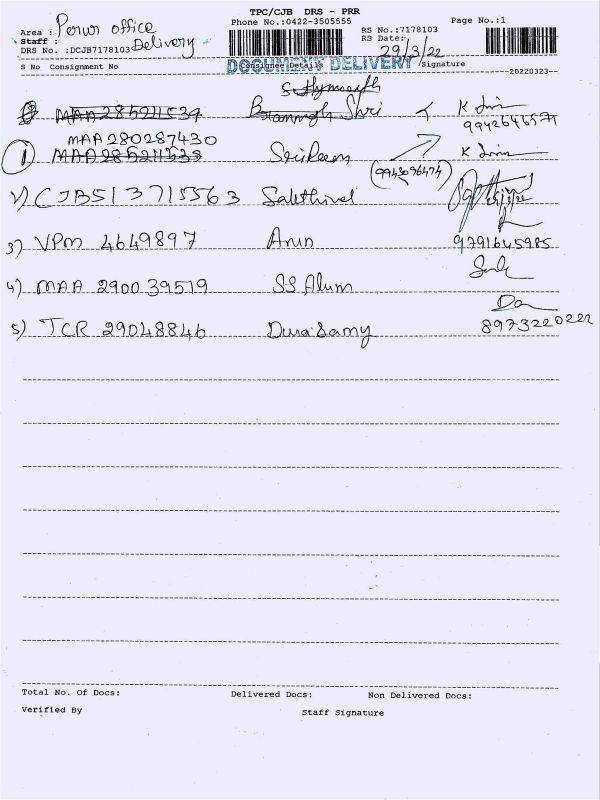 TPC/CJB DRS - PRR
Phone No.:0422-3505555
Page No.:1
Area : Perur office
Staff : Delivery
DRS No. :DCJB7178103
RS No.:7178103
RS Date: 29/3/22
DOCUMENT DELIVERY
S No Consignment No Consignee Details Signature
20220323--
MAA 285211534 Shri
9942646571
MAA 280287430
1 MAA 285211533 SriRam
(9943096474)
2) CJB513715563 Sakthivel
3) VPM 4649897 Arun 9791645985
4) MAA 290039519 SS Alum
5) TCR 29048846 Duraisamy 8973220222
Total No. Of Docs: Delivered Docs: Non Delivered Docs:
Verified By Staff Signature